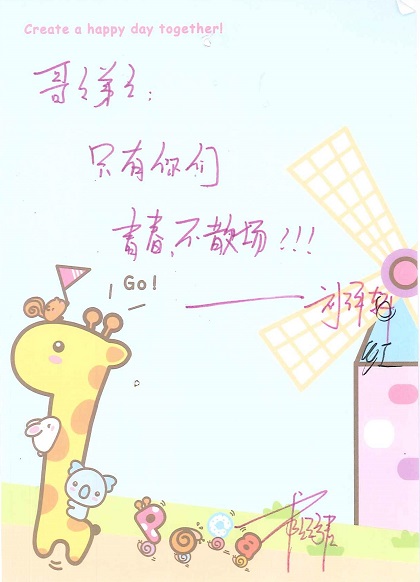 Create a happy day together!
哥々弟々：
只有你们
青春不散场!!!
Go!